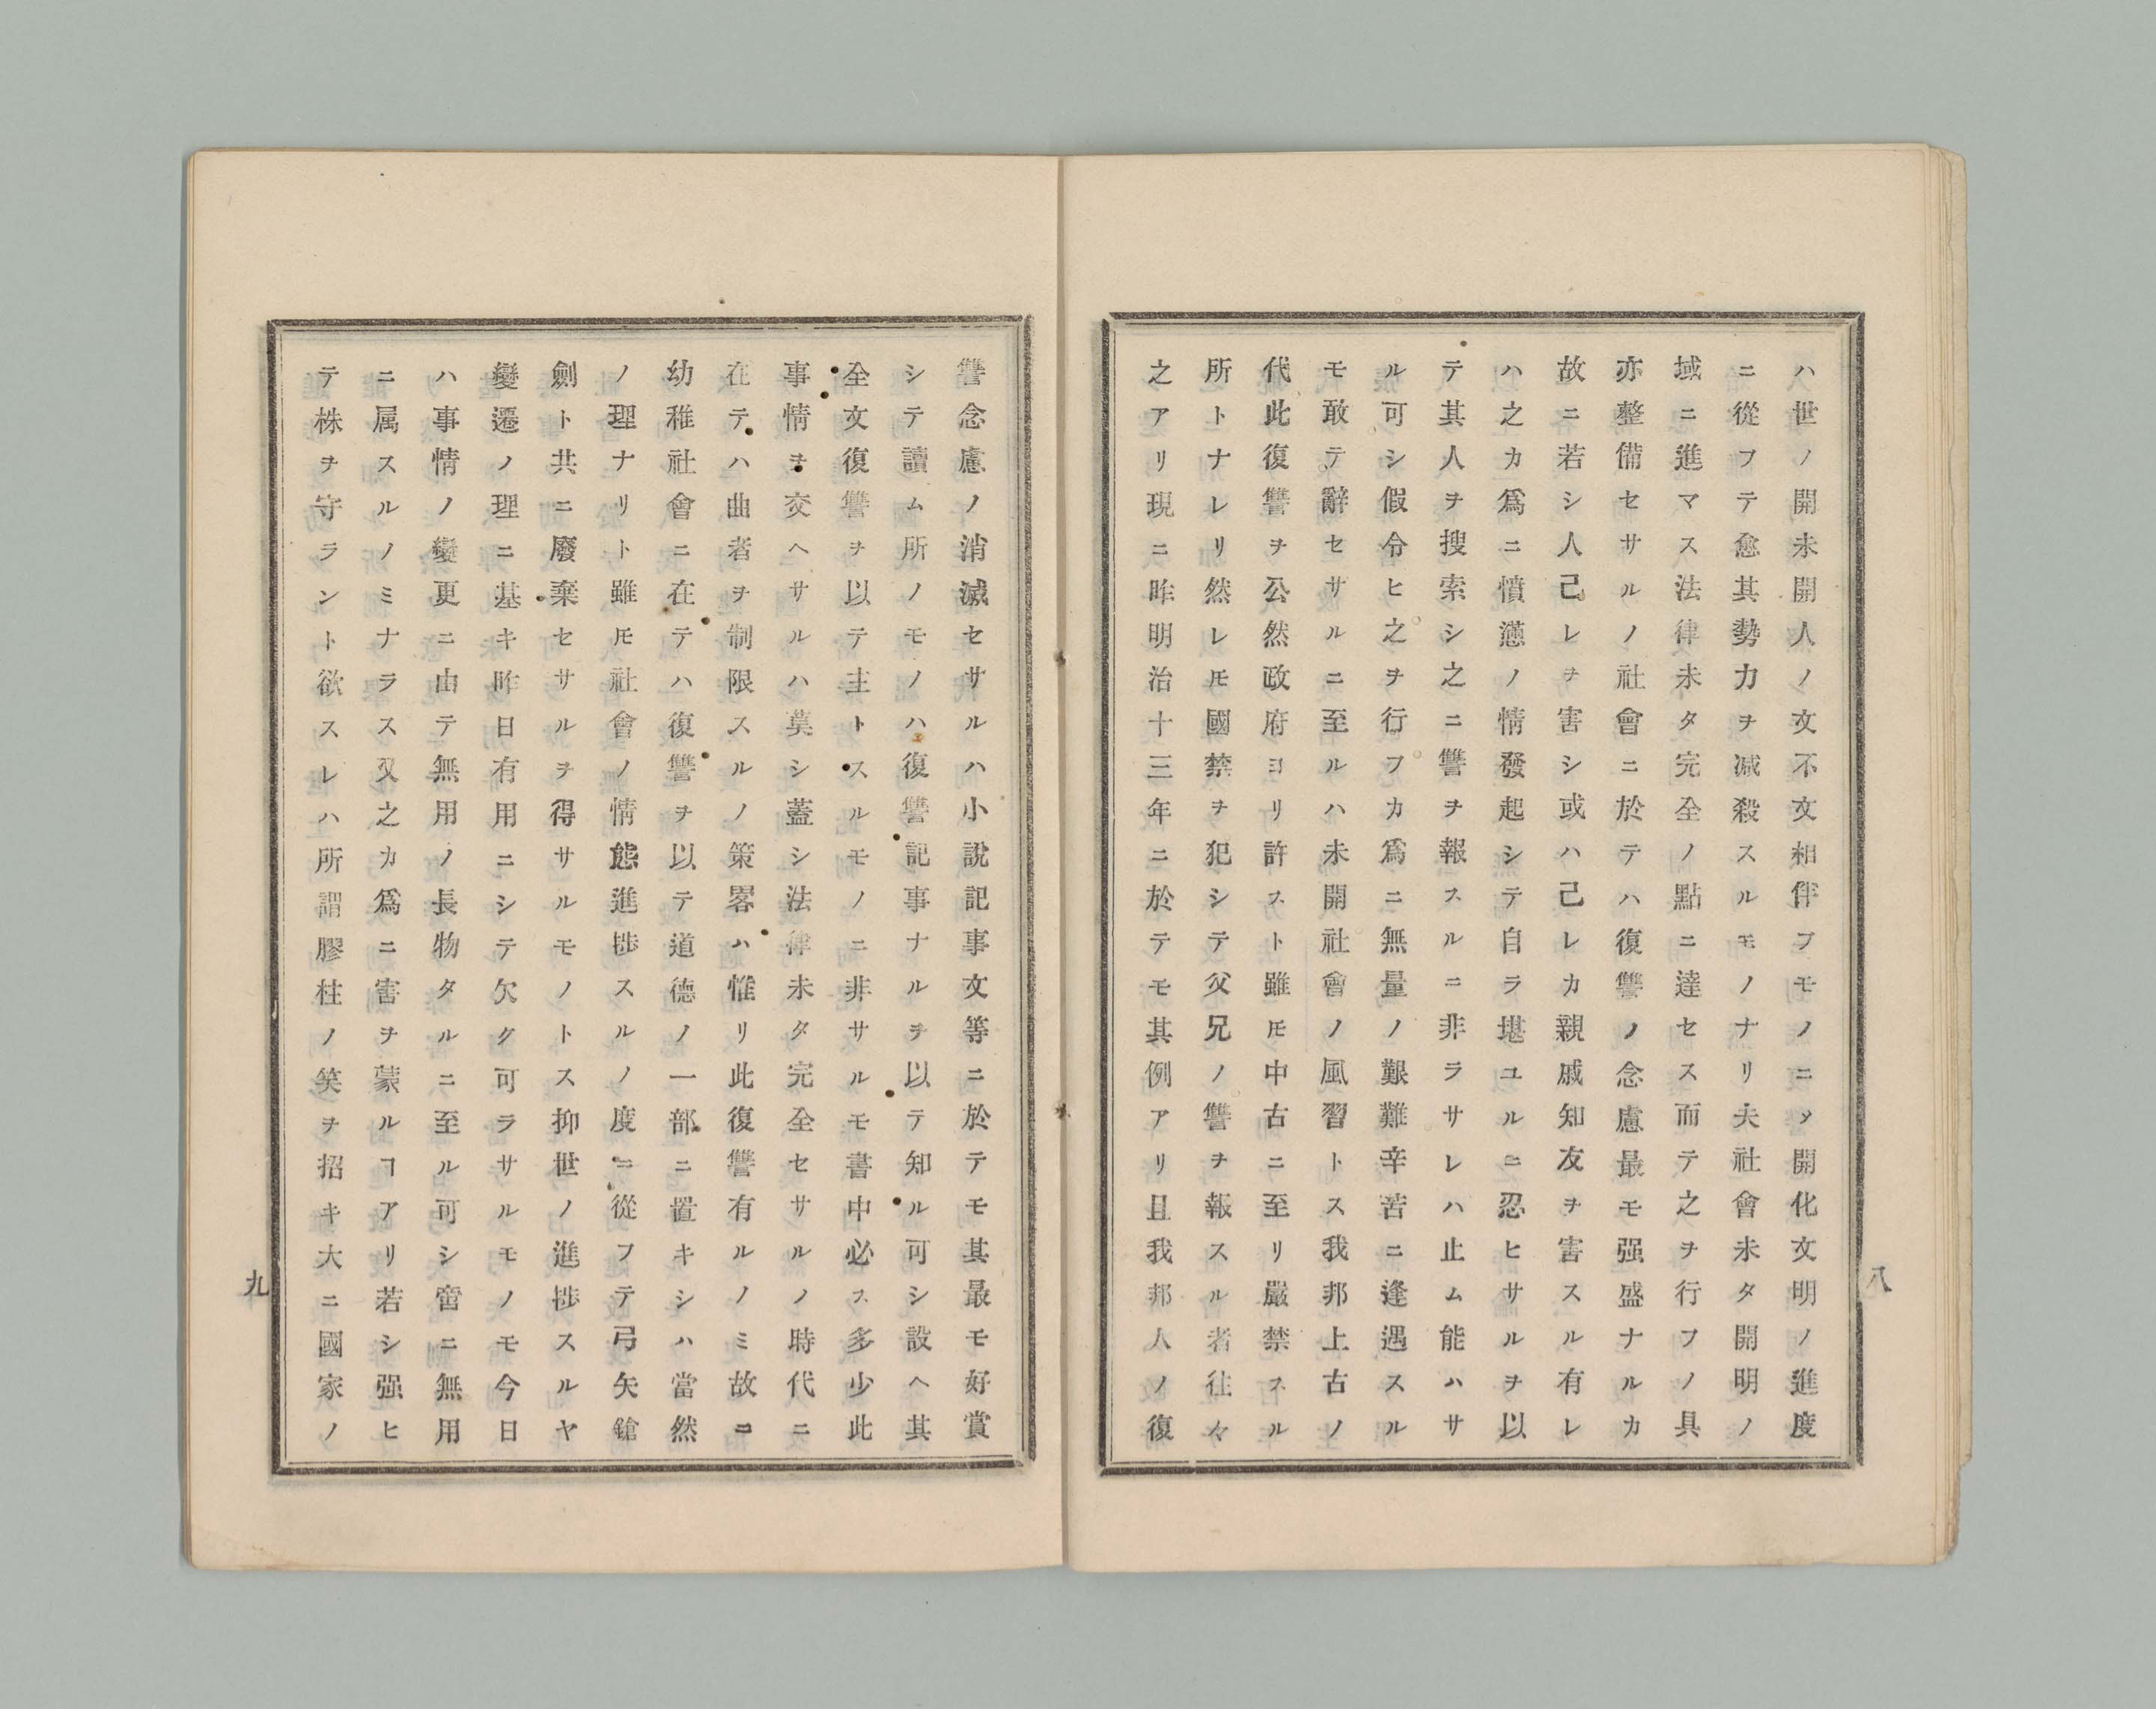 ハ世ノ開未開人ノ文不文相伴フモノニメ開化文明ノ進度
ニ從フテ愈其勢力ヲ減殺スルモノナリ夫社會未タ開明ノ
域ニ進マス法律未タ完全ノ點ニ達セス而テ之ヲ行フノ具
亦整備セサルノ社會ニ於テハ復讐ノ念慮最モ强盛ナルカ
故ニ若シ人己レヲ害シ或ハ己レカ親戚知友ヲ害スル有レ
ハ之カ爲ニ憤懣ノ情發起シテ自ラ堪ユルニ忍ヒサルヲ以
テ其人ヲ搜索シ之ニ讐ヲ報スルニ非ラサレハ止ム能ハサ
ル可シ假令ヒ之ヲ行フカ爲ニ無量ノ艱難辛苦ニ逢遇スル
モ敢テ辭セサルニ至ルハ未開社會ノ風習トス我邦上古ノ
代此復讐ヲ公然政府ヨリ許スト雖𪜈中古ニ至リ嚴禁スル
所トナレリ然レ𪜈國禁ヲ犯シテ父兄ノ讐ヲ報スル者往々
之アリ現ニ昨明治十三年ニ於テモ其例アリ且我邦人ノ復
八
讐念慮ノ消滅セサルハ小說記事文等ニ於テモ其最モ好賞
シテ讀ム所ノモノハ復讐記事ナルヲ以テ知ル可シ設ヘ其
全文復讐ヲ以テ主トスルモノニ非サルモ書中必ス多少此
事情ヲ交ヘサルハ莫シ蓋シ法律未タ完全セサルノ時代ニ
在テハ曲者ヲ制限スルノ策畧ハ惟リ此復讐有ルノミ故ニ
幼稚社會ニ在テハ復讐ヲ以テ道德ノ一部ニ置キシハ當然
ノ理ナリト雖𪜈社會ノ情態進捗スルノ度ニ從フテ弓矢鎗
劍ト共ニ廢棄セサルヲ得サルモノトス抑世ノ進捗スルヤ
變遷ノ理ニ基キ昨日有用ニシテ欠ク可ラサルモノモ今日
ハ事情ノ變更ニ由テ無用ノ長物タルニ至ル可シ啻ニ無用
ニ属スルノミナラス又之カ爲ニ害ヲ蒙ルヿアリ若シ强ヒ
テ株ヲ守ラント欲スレハ所謂膠柱ノ笑ヲ招キ大ニ國家ノ
九